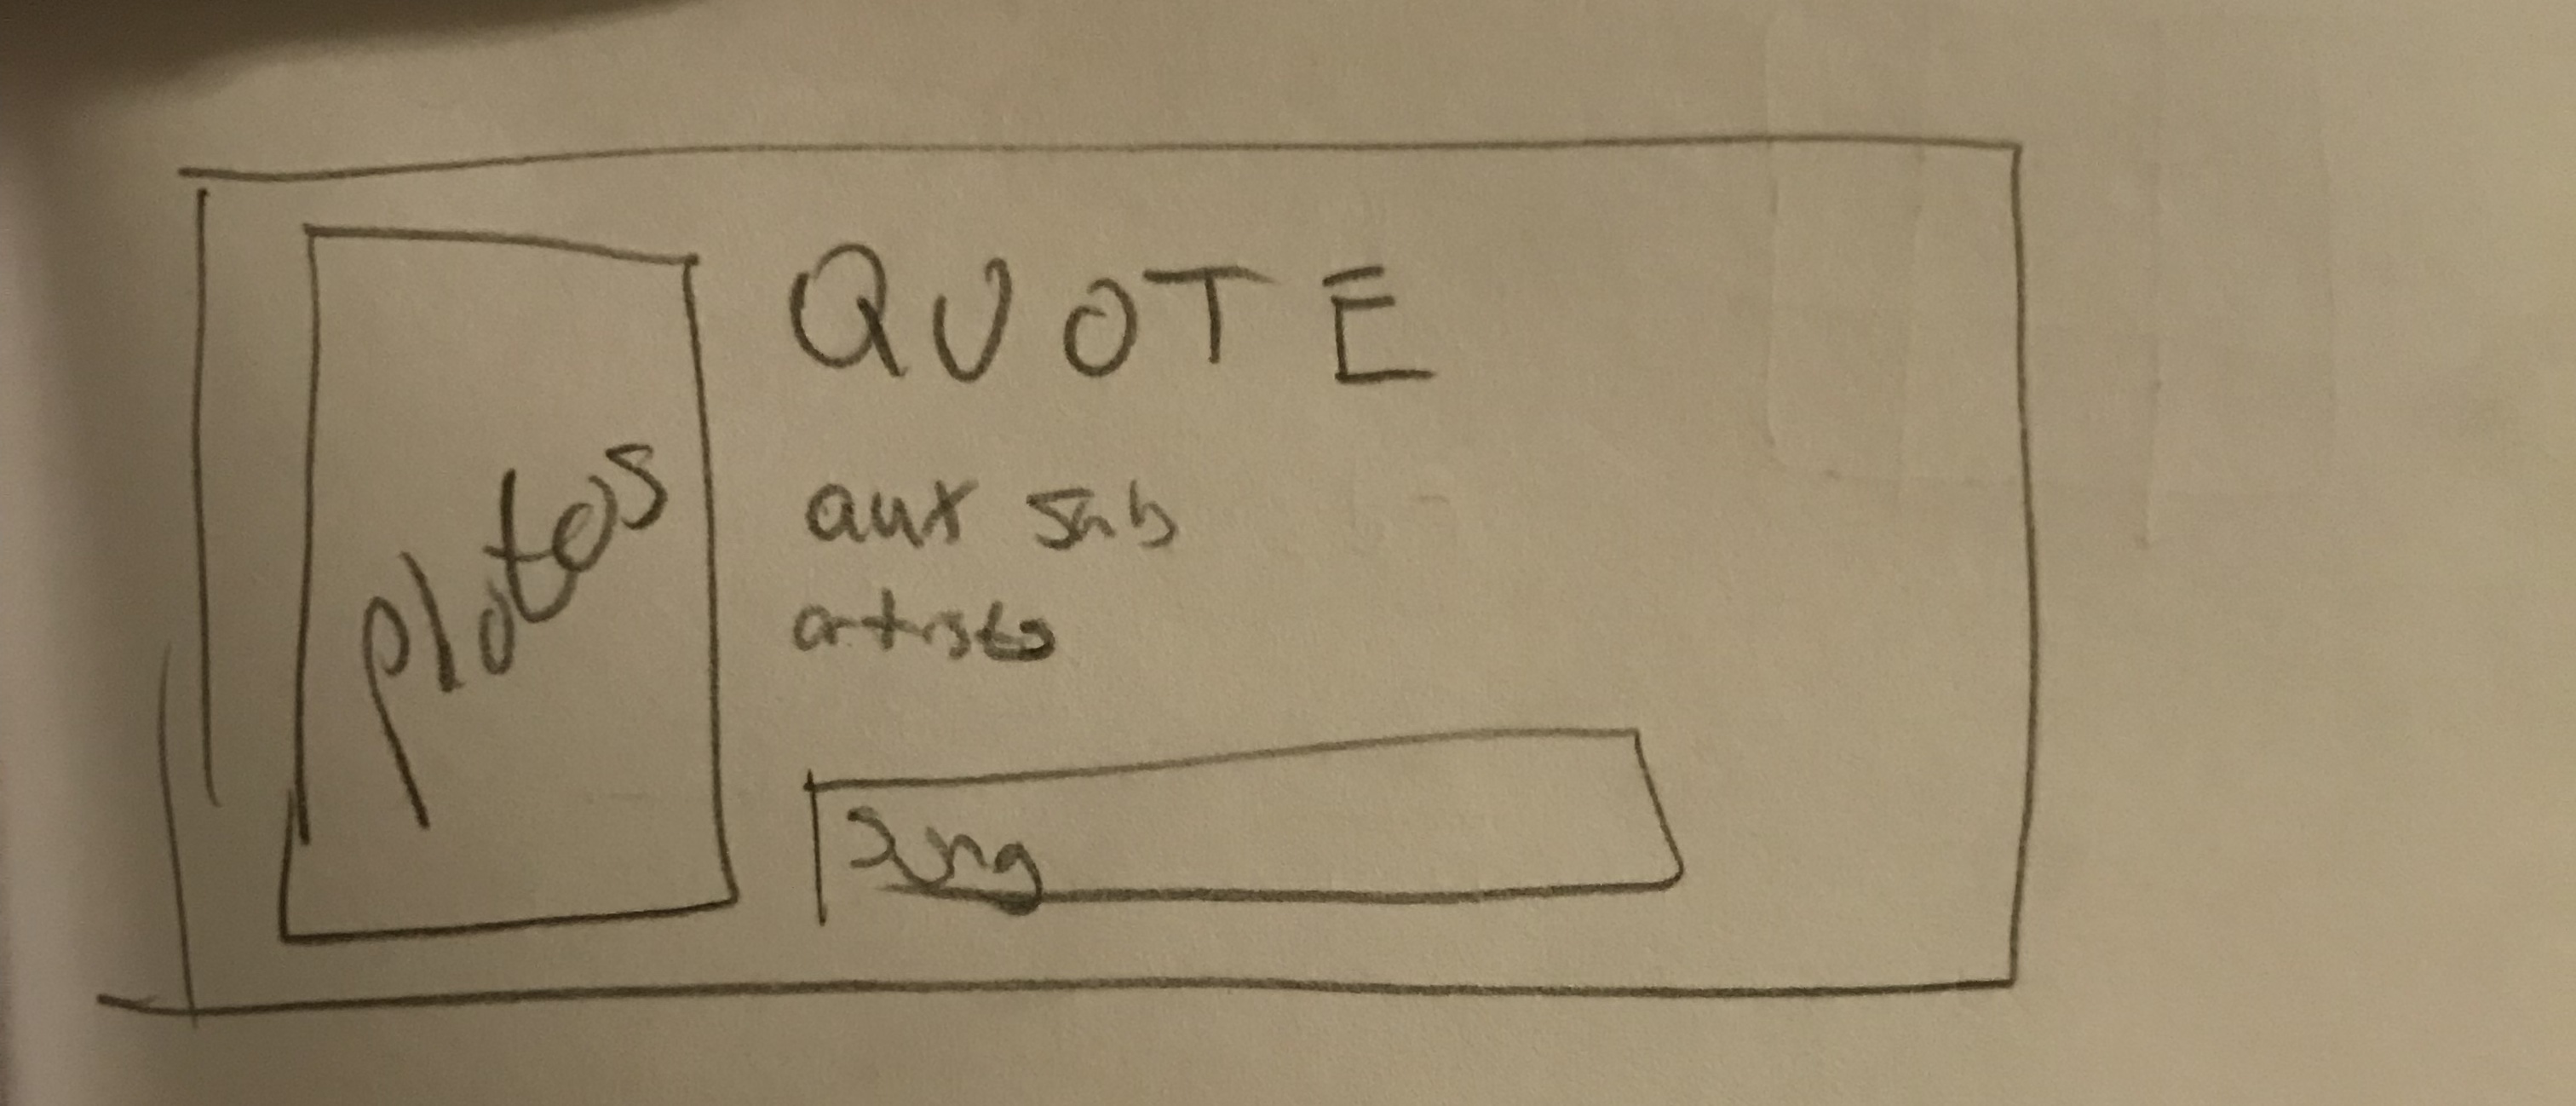 photos
QUOTE
aux sub
artists
Song